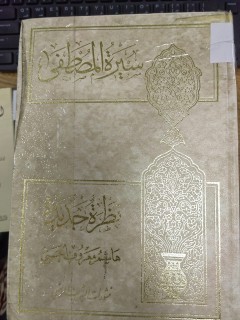 سيرة المصطفى
نظرة جديدة
هاشم معروف الحسني